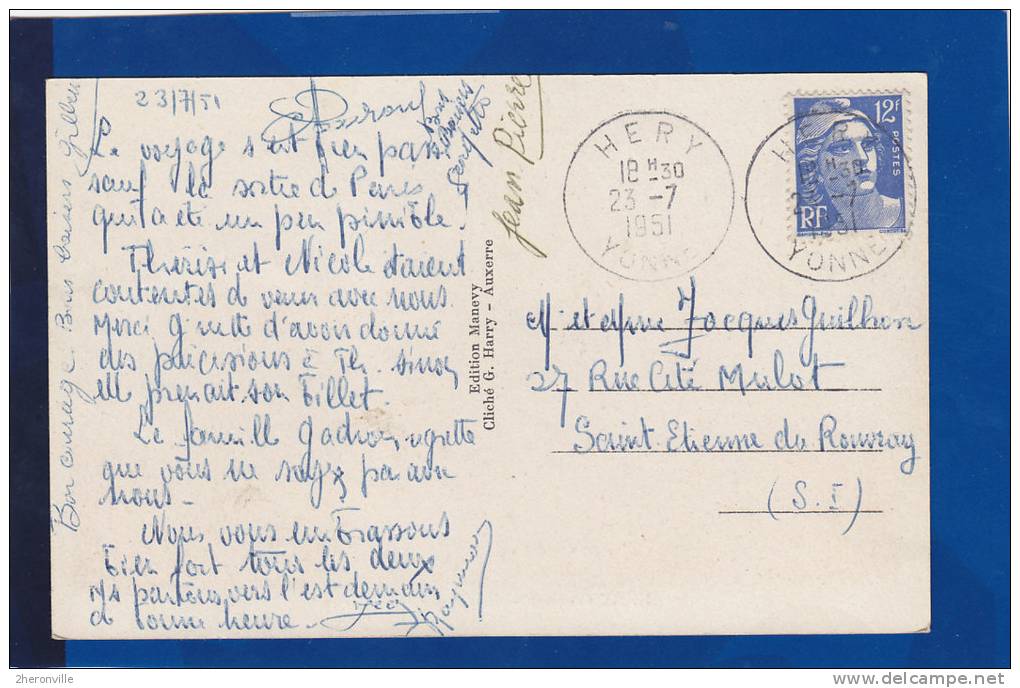 23/7/51
Le voyage s'est bien passé
sauf la sortie de Paris
qui a été un peu pénible.
Thérèse et Nicole étaient
contentes de venir avec nous
Merci Ginette d'avoir donné
des précisions à Th. sinon
elle prenait son billet.
La famille regrette
que vous ne soyez pas avec
nous.
Nous vous embrassons
bien fort tous les deux
ns partons vers l'est demain
de bonne heure.
Raymond
Bon courage. Bons baisers Gilbert
Bons
baisers
Jean Pierre
Edition Manevy
Cliché G. Harry - Auxerre
HERY
18 H 30
23 -7
1951
YONNE
12F
POSTES
RF
HERY
18 H 30
23 -7
1951
YONNE
M. et Mme Jacques Guilhon
27 Rue Cité Mulot
Saint Etienne du Rouvray
(S.I)
2heronville
delcampe.net